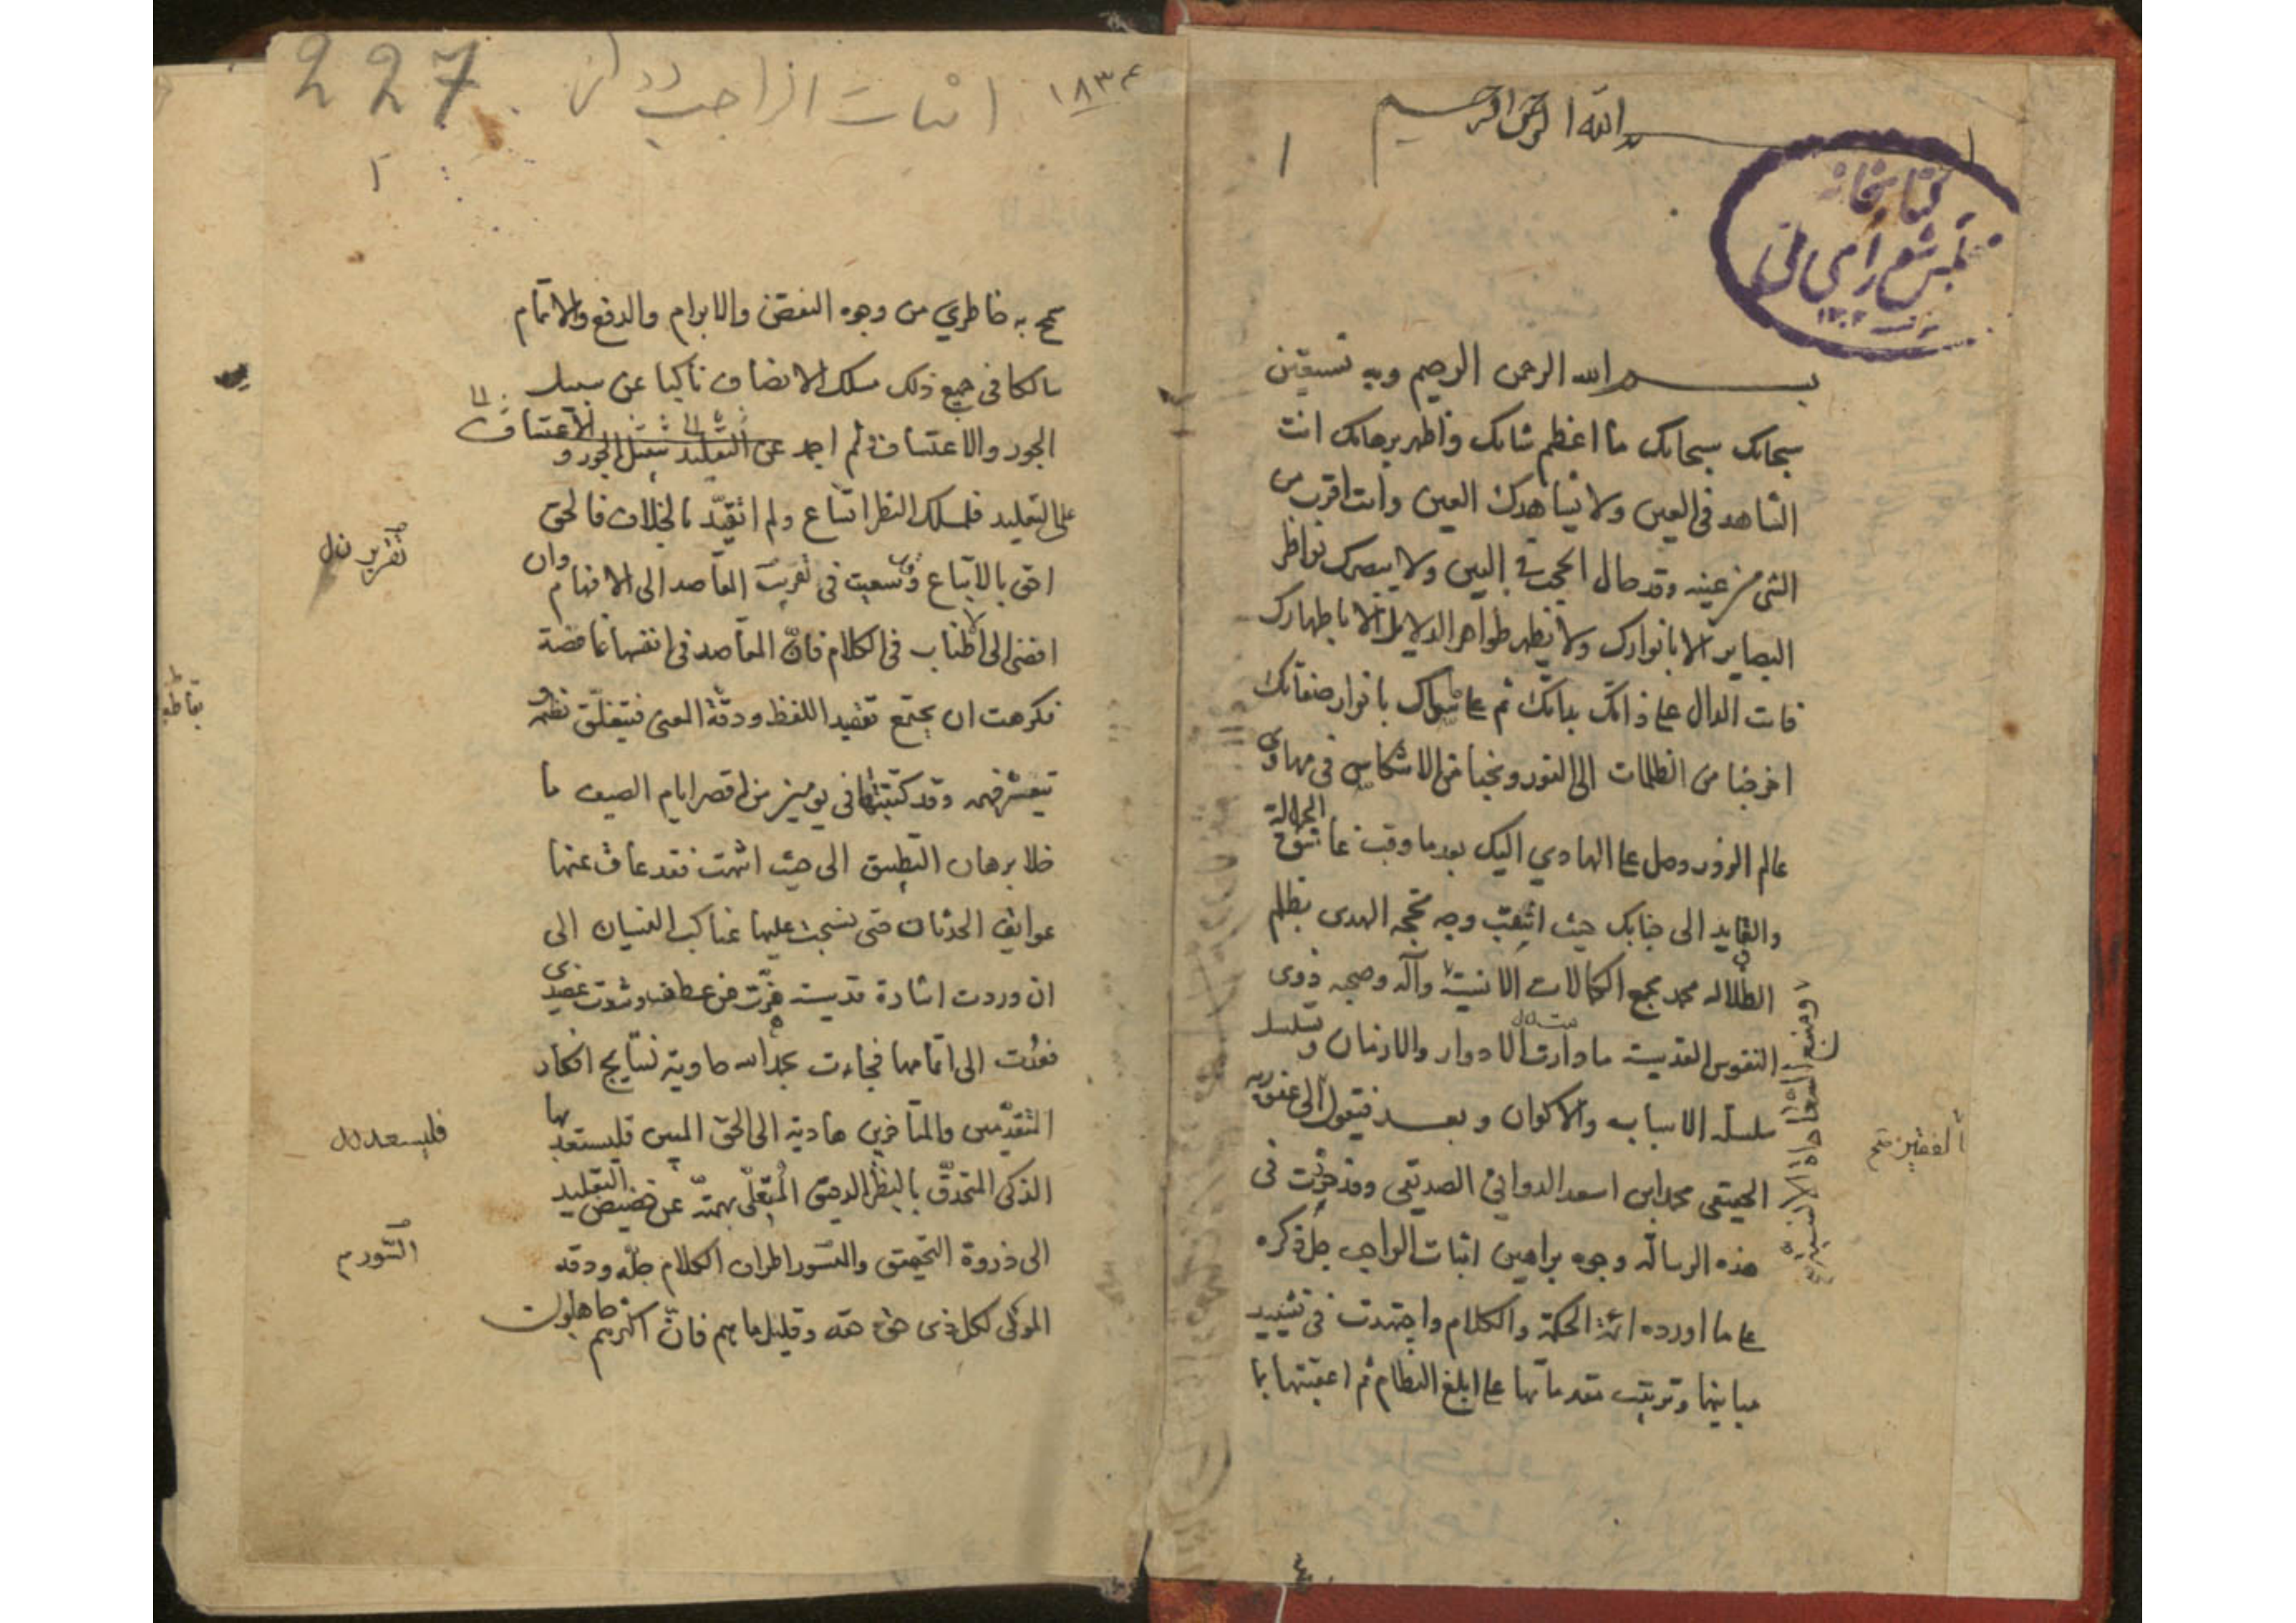 بسم الله الرحمن الرحيم
۱
كتابخانه
مجلس شورای ملی
بسم الله الرحمن الرحيم وبه نستعين
سبحانك سبحانك ما اعظم شانك واظهر برهانك انت
الشاهد في العين ولا يشاهدك العين وانت اقرب من
الشئ من عينه وقد حال الحجب في البين ولا يبصرك نواظر
البصاير الا بانوارك ولا يظهر ظواهر الدلايل الا باظهارك
فانت الدال على ذاتك بذاتك ثم على سواك بانوار صفاتك
اخرجنا من الظلمات الى النور ونجنا من الانتكاس في مهاوى
عالم الزور وصل على الهادي اليك بعد ما وقب غاسق الجهالة
والقايد الى جنابك حيث انتقب وجه محجة الهدى بظلم
الضلالة محمد مجمع الكمالات الانسية وآله وصحبه ذوى
النفوس القدسية ما دارت الادوار والازمان وتسلسل
سلسلة الاسباب والاكوان وبعد فيقول الى عفو ربه
الفقير
الحقيقى محمد ابن اسعد الدوانى الصديقى وقد حررت فى
هذه الرسالة وجوه براهين اثبات الواجب جل ذكره
على ما اورده ائمة الحكمة والكلام واجتهدت فى تشييد
مبانيها وترتيب مقدماتها على ابلغ النظام ثم اعقبتها بما
227
اثبات الواجب
۱۸۳۴
۲
سمح به خاطري من وجوه النقض والابرام والدفع والاتمام
سالكا في جميع ذلك مسلك الانصاف ناكبا عن سبيل
الجور والاعتساف ثم اجمد عن التقليد سبيل الجور والاعتساف
على التقليد فلمسلك النظر اتساع ولم اتقيد بالخلاف فالحق
احق بالاتباع وسعيت فى تقريب المقاصد الى الافهام وان
تقرير
افضى الى الاطناب فى الكلام فان المقاصد فى انفسها غامضة
فكرهت ان يجتمع تعقيد اللفظ ودقة المعنى فيتغلق نظمه و
يتعسر فهمه وقد كتبتها فى يومين من اقصر ايام الصيف ما
خلا برهان التطبيق الى حيث انتهت فقد عاق عنها
عوايق الحدثان حتى نسجت عليها عناكب النسيان الى
ان وردت اشارة قدسية هزت من عطفى وشدت عضدى
فعدت الى اتمامها فجاءت بحمد الله حاوية نتايج افكار
المتقدمين والمتاخرين هادية الى الحق المبين فليستعد بها
فليسعد
الذكى المتحدق بالنظر الدقيق المتعلى بهمته عن حضيض التقليد
الى ذروة التحقيق والتسور اطراف الكلام جله ودقه
التسور
الموفى لكل ذى حق حقه وقليل ما هم فان اكثرهم جاهلون